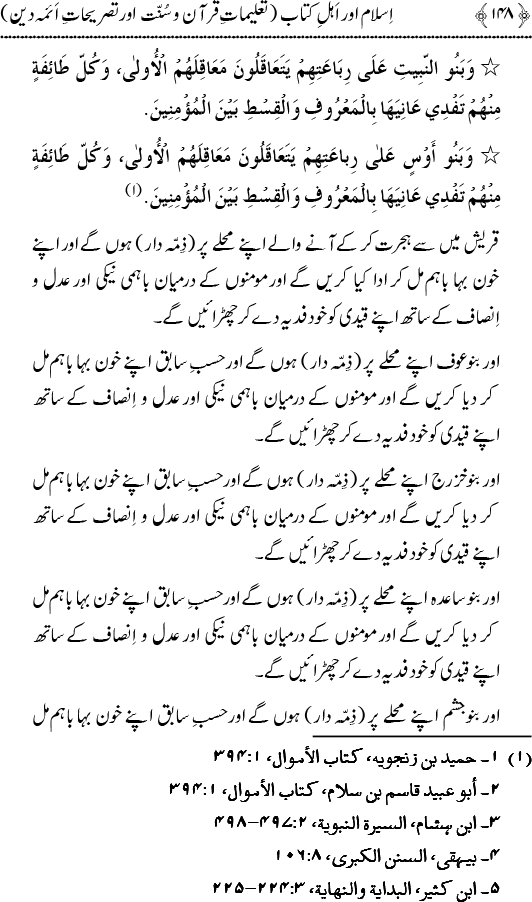 ﴿۱۴۸﴾ اِسلام اور اَہلِ کتاب (تعلیماتِ قرآن و سُنّت اور تصریحاتِ اَئمہ دین)
☆ وَبَنُو النَّبِيتِ عَلَى رِبَاعَتِهِمْ يَتَعَاقَلُونَ مَعَاقِلَهُمُ الْأُولَى، وَكُلّ طَائِفَةٍ
مِنْهُمْ تَفْدِي عَانِيَهَا بِالْمَعْرُوفِ وَالْقِسْطِ بَيْنَ الْمُؤْمِنِينَ.
☆ وَبَنُو أَوْسٍ عَلَى رِباعَتِهِمْ يَتَعَاقَلُونَ مَعَاقِلَهُمُ الْأُولَى، وَكُلّ طَائِفَةٍ
مِنْهُمْ تَفْدِي عَانِيَهَا بِالْمَعْرُوفِ وَالْقِسْطِ بَيْنَ الْمُؤْمِنِينَ. (۱)
قریش میں سے ہجرت کر کے آنے والے اپنے محلے پر (ذِمّہ دار) ہوں گے اور اپنے
خون بہا باہم مل کر ادا کیا کریں گے اور مومنوں کے درمیان باہمی نیکی اور عدل و
اِنصاف کے ساتھ اپنے قیدی کو خود فدیہ دے کر چھڑائیں گے۔
اور بنو عوف اپنے محلے پر (ذِمّہ دار) ہوں گے اور حسبِ سابق اپنے خون بہا باہم مل
کر دیا کریں گے اور مومنوں کے درمیان باہمی نیکی اور عدل و اِنصاف کے ساتھ
اپنے قیدی کو خود فدیہ دے کر چھڑائیں گے۔
اور بنو خزرج اپنے محلے پر (ذِمّہ دار) ہوں گے اور حسبِ سابق اپنے خون بہا باہم مل
کر دیا کریں گے اور مومنوں کے درمیان باہمی نیکی اور عدل و اِنصاف کے ساتھ
اپنے قیدی کو خود فدیہ دے کر چھڑائیں گے۔
اور بنو ساعدہ اپنے محلے پر (ذِمّہ دار) ہوں گے اور حسبِ سابق اپنے خون بہا باہم مل
کر دیا کریں گے اور مومنوں کے درمیان باہمی نیکی اور عدل و اِنصاف کے ساتھ
اپنے قیدی کو خود فدیہ دے کر چھڑائیں گے۔
اور بنو جشم اپنے محلے پر (ذِمّہ دار) ہوں گے اور حسبِ سابق اپنے خون بہا باہم مل
(۱) ۱۔ حمید بن زنجویہ، کتاب الأموال، ۱:۳۹۴
۲۔ أبو عبید قاسم بن سلام، کتاب الأموال، ۱:۳۹۴
۳۔ ابن ہشام، السیرۃ النبویۃ، ۲:۴۹۷-۴۹۸
۴۔ بیہقی، السنن الکبری، ۸:۱۰۶
۵۔ ابن کثیر، البدایۃ والنھایۃ، ۳:۲۲۴-۲۲۵